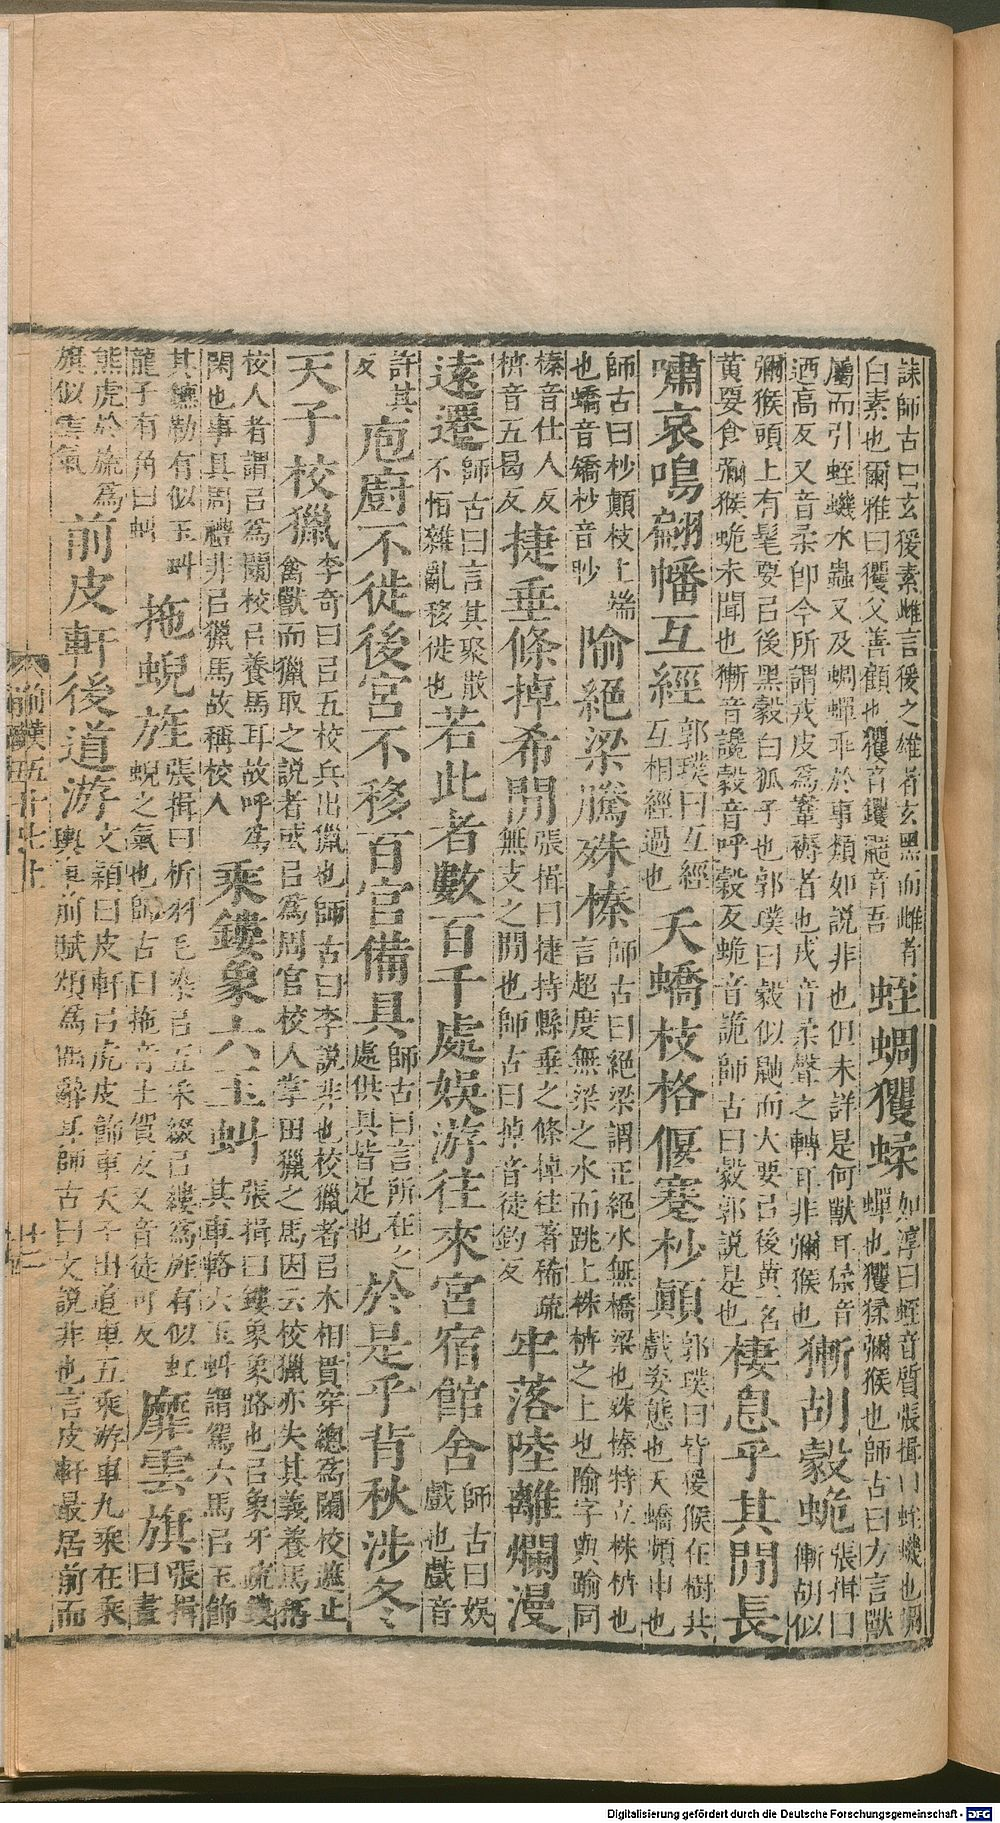 誄師古曰玄猨素雌言猨之雄者玄黑而雌者
白素也爾雅曰玃父善顧也玃音钁䶉音吾
蛭蜩玃蝚
如淳曰蛭音質張揖曰蛭蟣也蜩
蟬也玃猱彌猴也師古曰方言獸
屬而引蛭蟣水蟲又及蜩蟬乖於事類如說非也但未詳是何獸耳猱音
迺高反又音柔卽今所謂戎皮爲鞌褥者也戎音柔聲之轉耳非彌猴也
獑胡豰蛫
張揖曰
獑胡似
彌猴頭上有髦要㠯後黑豰白狐子也郭璞曰豰似鼬而大要㠯後黃名
黃要食彌猴蛫未聞也獑音讒豰音呼豰反蛫音詭師古曰豰郭說是也
棲息乎其閒長
嘯哀鳴翩幡互經
郭璞曰互經
互相經過也
夭蟜枝格偃蹇杪顛
郭璞曰皆猨猴在樹共
戲姿態也夭蟜頻申也
師古曰杪顛枝上端
也蟜音矯杪音眇
隃絕梁騰殊榛
師古曰絕梁謂正絕水無橋梁也殊榛特立株枿也
言超度無梁之水而跳上株枿之上也隃字與踰同
榛音仕人反
枿音五曷反
捷垂條掉希閒
張揖曰捷持縣垂之條掉往著稀疏
無支之閒也師古曰掉音徒釣反
牢落陸離爛漫
遠遷
師古曰言其聚散
不恒雜亂移徙也
若此者數百千處娛游往來宮宿館舍
師古曰娛
戲也戲音
許其
反
庖廚不徙後宮不移百官備具
師古曰言所在之
處供具皆足也
於是乎背秋涉冬
天子校獵
李奇曰㠯五校兵出獵也師古曰李說非也校獵者㠯木相貫穿緫爲闌校遮止
禽獸而獵取之說者或㠯爲周官校人掌田獵之馬因云校獵亦失其義養馬稱
校人者謂㠯爲闌校㠯養馬耳故呼爲
閑也事具周禮非㠯獵馬故稱校人
乘鏤象六玉虯
張揖曰鏤象象路也㠯象牙疏鏤
其車輅六玉虯謂駕六馬㠯玉飾
其鑣勒有似玉虯
龍子有角曰虯
拖蜺旌
張揖曰析羽毛染㠯五采綴㠯縷爲旌有似虹
蜺之氣也師古曰拖音土賀反又音徒可反
靡雲旗
張揖
曰畫
熊虎於旒爲
旗似雲氣
前皮軒後道游
文穎曰皮軒㠯虎皮飾車天子出道車五乘游車九乘在乘
輿車前賦頌爲偶辭耳師古曰文說非也言皮軒最居前而
前漢五十七上
廿二
Digitalisierung gefördert durch die Deutsche Forschungsgemeinschaft - DFG